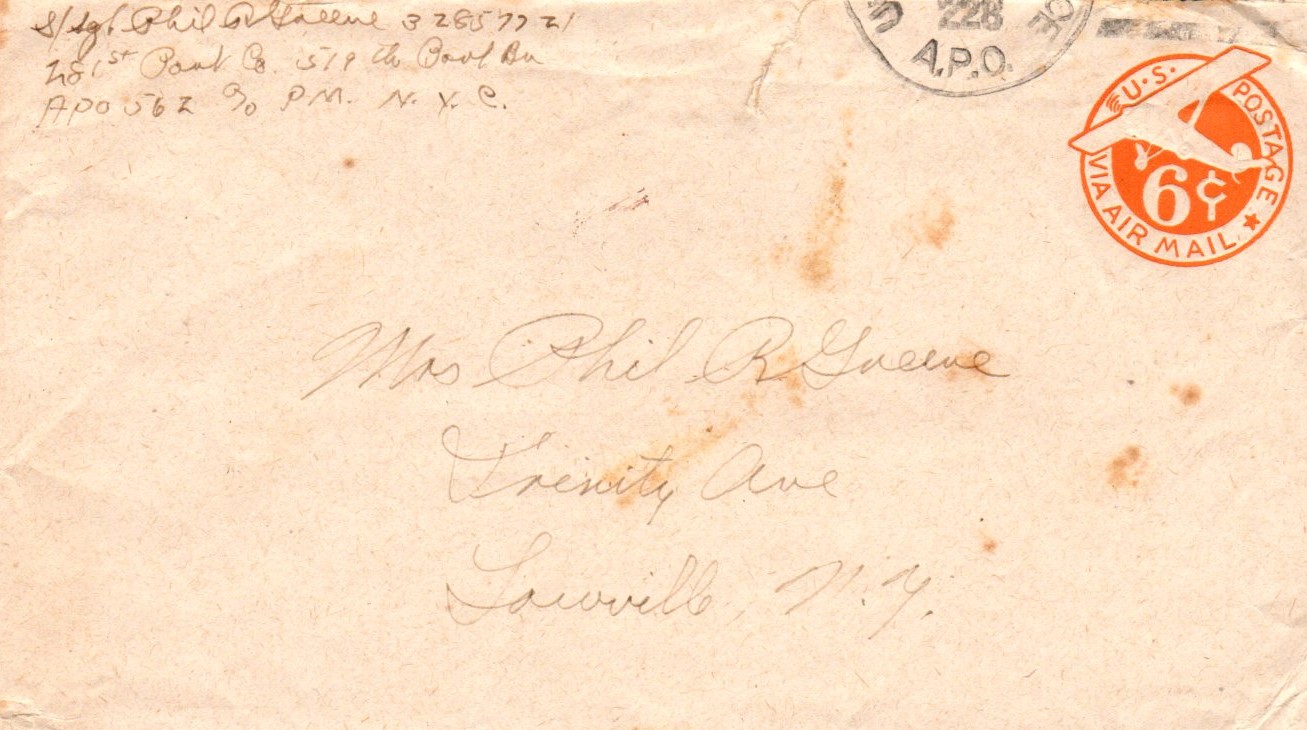 S/Sgt. Phil R Greene 32857721
281st Port Co. 519th Port Bn
APO 562 c/o P.M. N.Y.C.
228
A.P.O.
U.S. POSTAGE
6¢
VIA AIR MAIL
Mrs Phil R Greene
Trinity Ave
Lowville, N.Y.